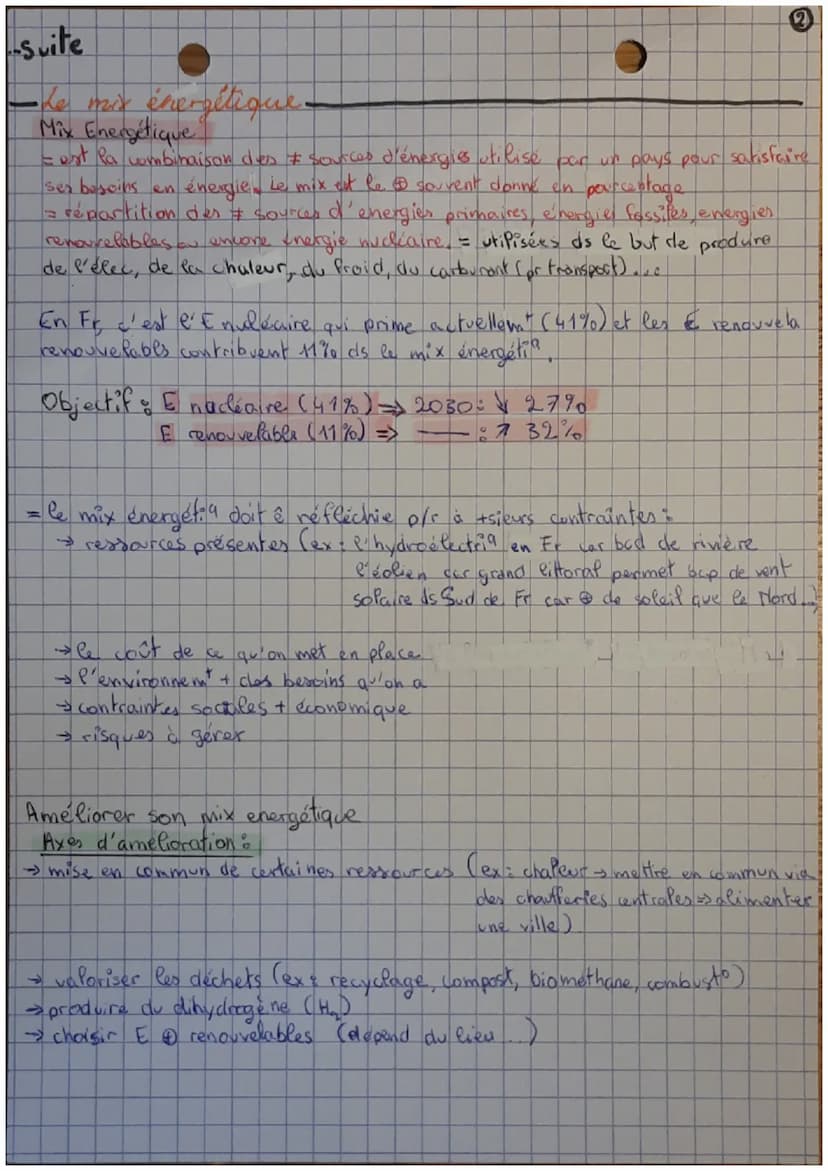 ②
..suite
Le mix énergétique
Mix Energétique
= est la combinaison des ≠ sources d'énergies utilisé par un pays pour satisfaire
ses besoins en énergie. Le mix est le ⊕ souvent donné en pourcentage
= répartition des ≠ sources d'energies primaires, énergies fossiles, energies
renouvelables ou encore énergie nucléaire. = utilisées ds le but de produire
de l'élec, de la chaleur, du froid, du carburant (pr transport)...
En Fr, c'est l'E nuléaire qui prime actuellemt (41%) et les E renouvela
renouvelables contribuent 11% ds le mix énergétiq.
Objectif : E nucléaire (41%) => 2030 : ↓ 27%
E renouvelable (11%) => — : ↗ 32%
= le mix énergétiq doit ê réfléchie p/r à +sieurs contraintes :
→ ressources présentes (ex : l'hydroélectriq en Fr car bcp de rivière
l'éolien car grand littoral permet bcp de vent
solaire ds Sud de Fr car ⊕ de soleil que le Nord...)
→ le coût de ce qu'on met en place
→ l'environnemt + des besoins qu'on a
→ contraintes sociales + économique
→ risques à gérer
Améliorer son mix energétique
Axes d'amélioration :
→ mise en commun de certaines ressources (ex : chaleur → mettre en commun via
des chaufferies centrales => alimenter
une ville)
→ valoriser les déchets (ex : recyclage, compost, biométhane, combusto)
→ produire du dihydrogène (H₂)
→ choisir E ⊕ renouvelables (dépend du lieu...)